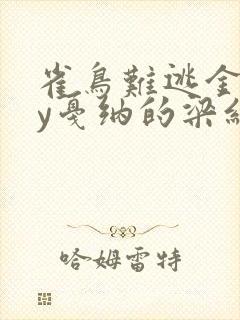 雀鳥難逃金
y戛纳的梁
哈姆雷特